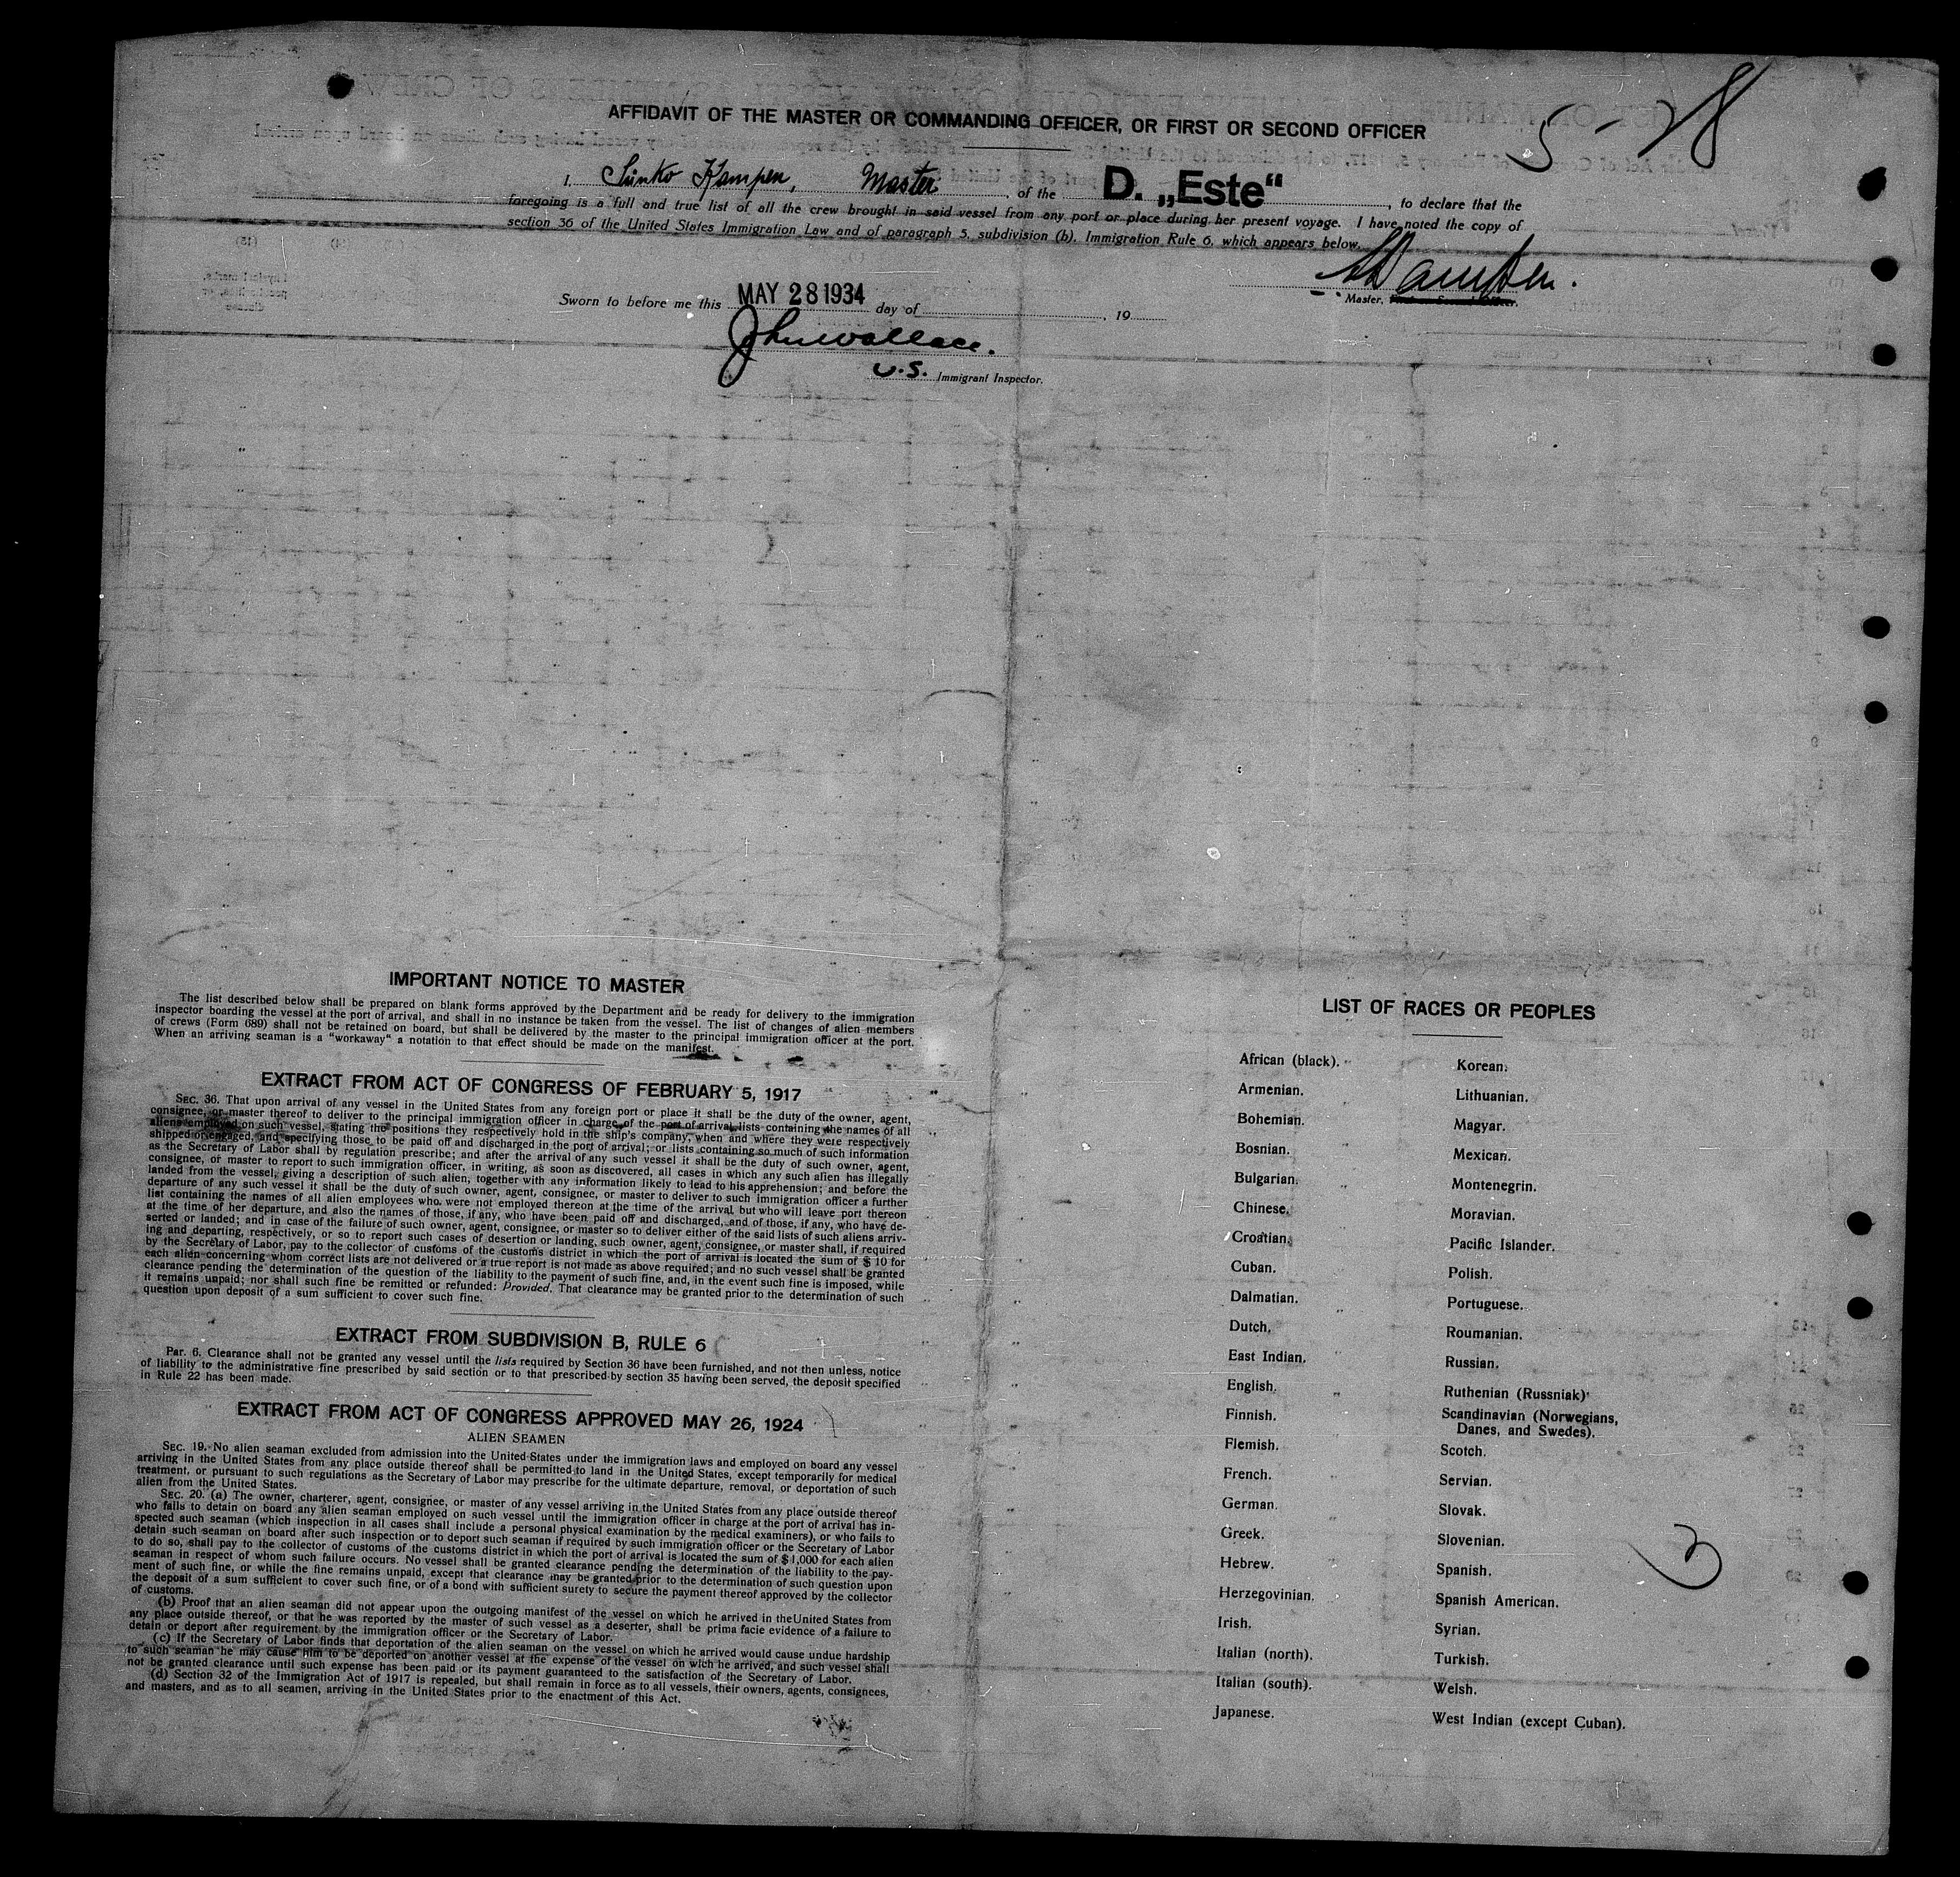 5-28
AFFIDAVIT OF THE MASTER OR COMMANDING OFFICER, OR FIRST OR SECOND OFFICER
I, Sünko Kampen, Master, of the D. „Este“, to declare that the
foregoing is a full and true list of all the crew brought in said vessel from any port or place during her present voyage. I have noted the copy of
section 36 of the United States Immigration Law and of paragraph 5, subdivision (b), Immigration Rule 6, which appears below.
SKampen.
Master, First or Second Officer.
Sworn to before me this MAY 28 1934 day of , 19
John Wallace.
U.S. Immigrant Inspector.
IMPORTANT NOTICE TO MASTER
The list described below shall be prepared on blank forms approved by the Department and be ready for delivery to the immigration
inspector boarding the vessel at the port of arrival, and shall in no instance be taken from the vessel. The list of changes of alien members
of crews (Form 689) shall not be retained on board, but shall be delivered by the master to the principal immigration officer at the port.
When an arriving seaman is a “workaway“ a notation to that effect should be made on the manifest.
EXTRACT FROM ACT OF CONGRESS OF FEBRUARY 5, 1917
SEC. 36. That upon arrival of any vessel in the United States from any foreign port or place it shall be the duty of the owner, agent,
consignee, or master thereof to deliver to the principal immigration officer in charge of the port of arrival lists containing the names of all
aliens employed on such vessel, stating the positions they respectively hold in the ship's company, when and where they were respectively
shipped or engaged, and specifying those to be paid off and discharged in the port of arrival; or lists containing so much of such information
as the Secretary of Labor shall by regulation prescribe; and after the arrival of any such vessel it shall be the duty of such owner, agent,
consignee, or master to report to such immigration officer, in writing, as soon as discovered, all cases in which any such alien has illegally
landed from the vessel, giving a description of such alien, together with any information likely to lead to his apprehension; and before the
departure of any such vessel it shall be the duty of such owner, agent, consignee, or master to deliver to such immigration officer a further
list containing the names of all alien employees who were not employed thereon at the time of the arrival but who will leave port thereon
at the time of her departure, and also the names of those, if any, who have been paid off and discharged, and of those, if any, who have de-
serted or landed; and in case of the failure of such owner, agent, consignee, or master so to deliver either of the said lists of such aliens arriv-
ing and departing, respectively, or so to report such cases of desertion or landing, such owner, agent, consignee, or master shall, if required
by the Secretary of Labor, pay to the collector of customs of the customs district in which the port of arrival is located the sum of $ 10 for
each alien concerning whom correct lists are not delivered or a true report is not made as above required; and no such vessel shall be granted
clearance pending the determination of the question of the liability to the payment of such fine, and, in the event such fine is imposed, while
it remains unpaid; nor shall such fine be remitted or refunded: Provided, That clearance may be granted prior to the determination of such
question upon deposit of a sum sufficient to cover such fine.
EXTRACT FROM SUBDIVISION B, RULE 6
Par. 6. Clearance shall not be granted any vessel until the lists required by Section 36 have been furnished, and not then unless, notice
of liability to the administrative fine prescribed by said section or to that prescribed by section 35 having been served, the deposit specified
in Rule 22 has been made.
EXTRACT FROM ACT OF CONGRESS APPROVED MAY 26, 1924
ALIEN SEAMEN
SEC. 19. No alien seaman excluded from admission into the United States under the immigration laws and employed on board any vessel
arriving in the United States from any place outside thereof shall be permitted to land in the United States, except temporarily for medical
treatment, or pursuant to such regulations as the Secretary of Labor may prescribe for the ultimate departure, removal, or deportation of such
alien from the United States.
SEC. 20. (a) The owner, charterer, agent, consignee, or master of any vessel arriving in the United States from any place outside thereof
who fails to detain on board any alien seaman employed on such vessel until the immigration officer in charge at the port of arrival has in-
spected such seaman (which inspection in all cases shall include a personal physical examination by the medical examiners), or who fails to
detain such seaman on board after such inspection or to deport such seaman if required by such immigration officer or the Secretary of Labor
to do so, shall pay to the collector of customs of the customs district in which the port of arrival is located the sum of $ 1,000 for each alien
seaman in respect of whom such failure occurs. No vessel shall be granted clearance pending the determination of the liability to the pay-
ment of such fine, or while the fine remains unpaid, except that clearance may be granted prior to the determination of such question upon
the deposit of a sum sufficient to cover such fine, or of a bond with sufficient surety to secure the payment thereof approved by the collector
of customs.
(b) Proof that an alien seaman did not appear upon the outgoing manifest of the vessel on which he arrived in the United States from
any place outside thereof, or that he was reported by the master of such vessel as a deserter, shall be prima facie evidence of a failure to
detain or deport after requirement by the immigration officer or the Secretary of Labor.
(c) If the Secretary of Labor finds that deportation of the alien seaman on the vessel on which he arrived would cause undue hardship
to such seaman he may cause him to be deported on another vessel at the expense of the vessel on wich he arrived, and such vessel shall
not be granted clearance until such expense has been paid or its payment guaranteed to the satisfaction of the Secretary of Labor.
(d) Section 32 of the Immigration Act of 1917 is repealed, but shall remain in force as to all vessels, their owners, agents, consignees,
and masters, and as to all seamen, arriving in the United States prior to the enactment of this Act.
LIST OF RACES OR PEOPLES
African (black).
Armenian.
Bohemian.
Bosnian.
Bulgarian.
Chinese.
Croatian.
Cuban.
Dalmatian.
Dutch.
East Indian.
English.
Finnish.
Flemish.
French.
German.
Greek.
Hebrew.
Herzegovinian.
Irish.
Italian (north).
Italian (south).
Japanese.
Korean.
Lithuanian.
Magyar.
Mexican.
Montenegrin.
Moravian.
Pacific Islander.
Polish.
Portuguese.
Roumanian.
Russian.
Ruthenian (Russniak)
Scandinavian (Norwegians,
Danes, and Swedes).
Scotch.
Servian.
Slovak.
Slovenian.
Spanish.
Spanish American.
Syrian.
Turkish.
Welsh.
West Indian (except Cuban).
3